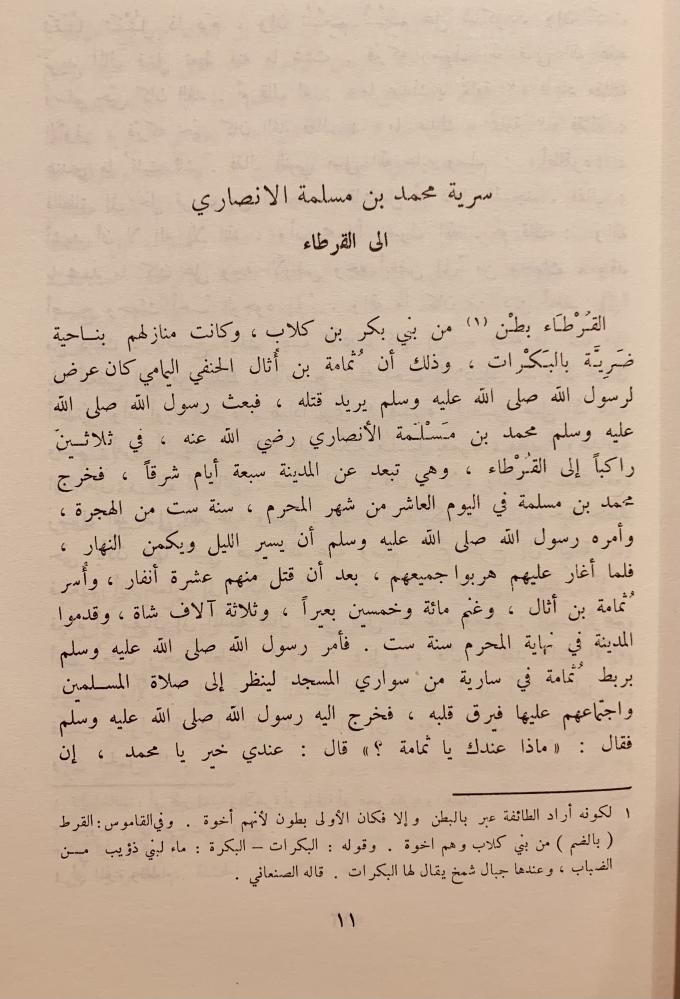 سرية محمد بن مسلمة الانصاري
الى القرطاء
القُرْطَاء بطْن (١) من بني بكر بن كلاب ، وكانت منازلهم بناحية
ضَرِيَّة بالبَكْرات ، وذلك أن ثُمامة بن أُثال الحنفي اليمامي كان عرض
لرسول الله صلى الله عليه وسلم يريد قتله ، فبعث رسول الله صلى الله
عليه وسلم محمد بن مَسْلَمة الأنصاري رضي الله عنه ، في ثلاثين
راكباً إلى القُرْطاء ، وهي تبعد عن المدينة سبعة أيام شرقاً ، فخرج
محمد بن مسلمة في اليوم العاشر من شهر المحرم ، سنة ست من الهجرة ،
وأمره رسول الله صلى الله عليه وسلم أن يسير الليل ويكمن النهار ،
فلما أغار عليهم هربوا جميعهم ، بعد أن قتل منهم عشرة أنفار ، وأُسر
ثُمامة بن أثال ، وغنم مائة وخمسين بعيراً ، وثلاثة آلاف شاة ، وقدموا
المدينة في نهاية المحرم سنة ست . فأمر رسول الله صلى الله عليه وسلم
بربط ثُمامة في سارية من سواري المسجد لينظر إلى صلاة المسلمين
واجتماعهم عليها فيرق قلبه ، فخرج اليه رسول الله صلى الله عليه وسلم
فقال : « ماذا عندك يا ثمامة ؟ » قال : عندي خير يا محمد ، إن
١ لكونه أراد الطائفة عبر بالبطن وإلا فكان الأولى بطون لأنهم أخوة . وفي القاموس : القرط
( بالضم ) من بني كلاب وهم اخوة . وقوله : البكرات – البكرة : ماء لبني ذؤيب من
الضباب ، وعندها جبال شمخ يقال لها البكرات . قاله الصنعاني .
١١